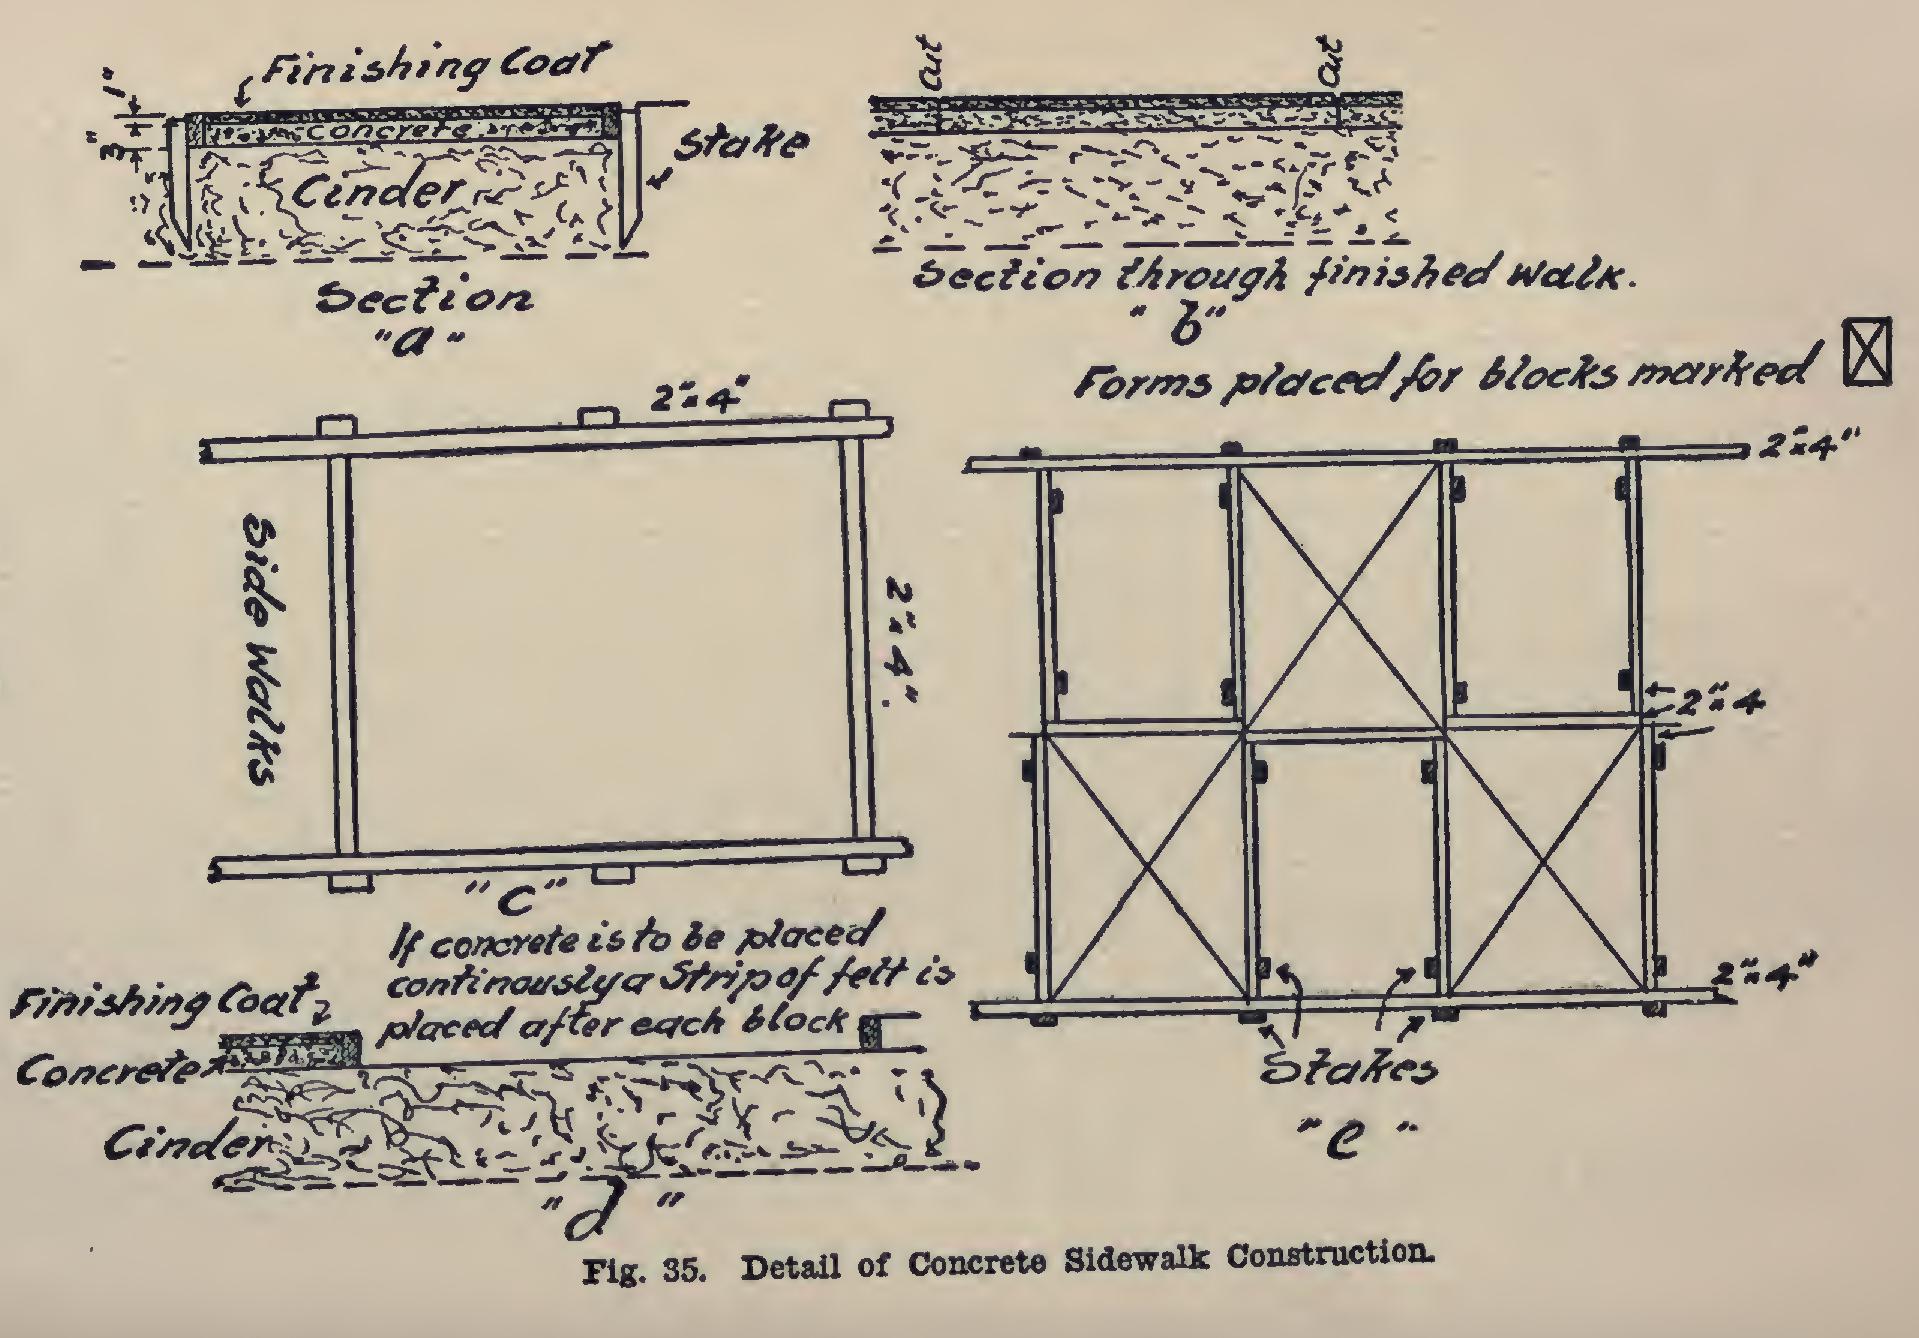 Finishing Coat
1"
3"
Concrete
Cinder
Stake
Section
"a"
Cut
Cut
Section through finished walk.
"b"
Forms placed for blocks marked
2"x4"
2"x4"
Side Walks
2"x4"
"C"
2"x4"
2"x4
2"x4"
Stakes
"e"
If concrete is to be placed
continously a Strip of felt is
placed after each block
Finishing Coat
Concrete
Cinder
"d"
Fig. 35. Detail of Concrete Sidewalk Construction.